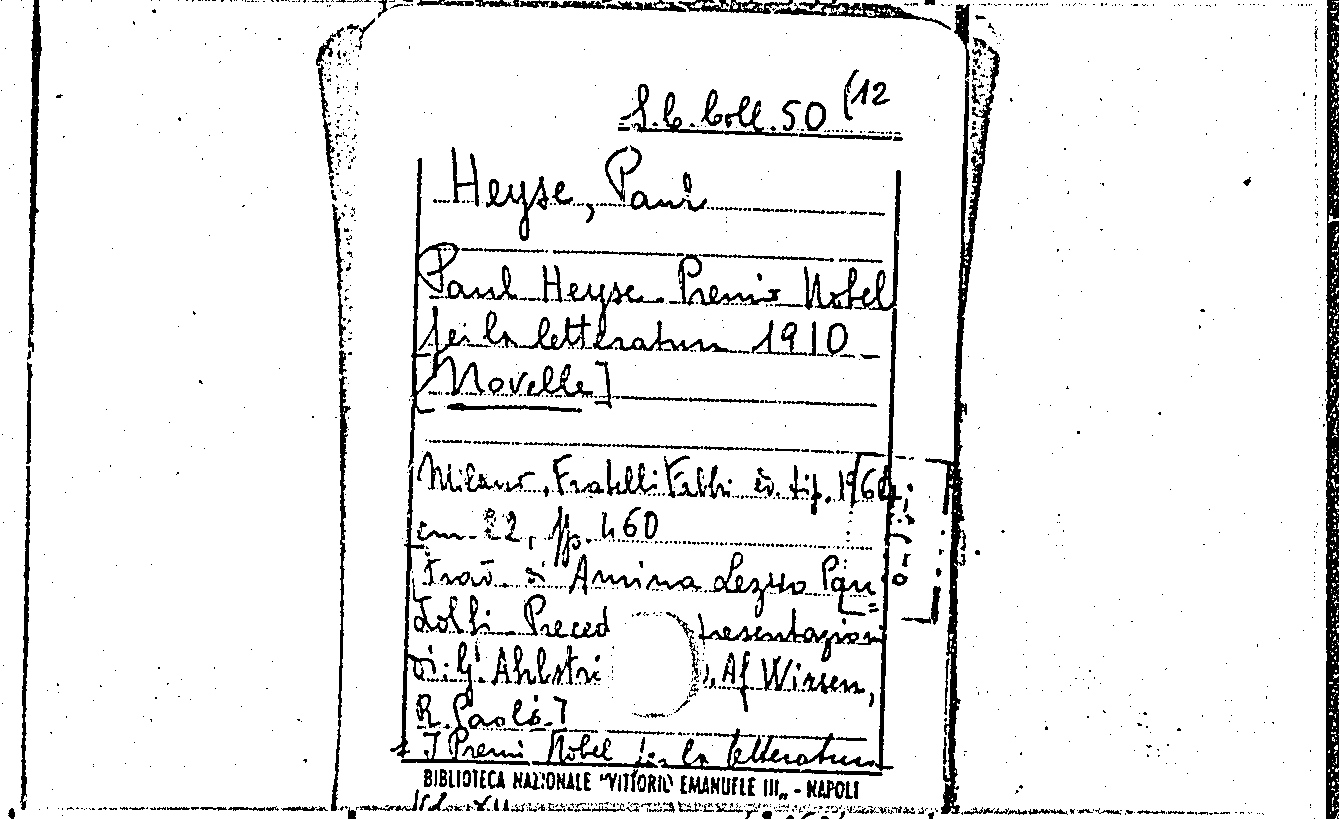 S.C. Coll. 50 (12
Heyse, Paul
Paul Heyse. Premio Nobel
per la letteratura 1910 -
[Novelle]
Milano, Fratelli Fabbri ed. tip. 1964,
cm. 22, pp. 460
Trad. di Amina Lezuo Pan=
dolfi. Preced presentazioni
di G. Ahlströ Af Wirsen,
R. Paoli.]
I Premi Nobel per la letteratura
BIBLIOTECA NAZIONALE "VITTORIO EMANUELE III„ - NAPOLI